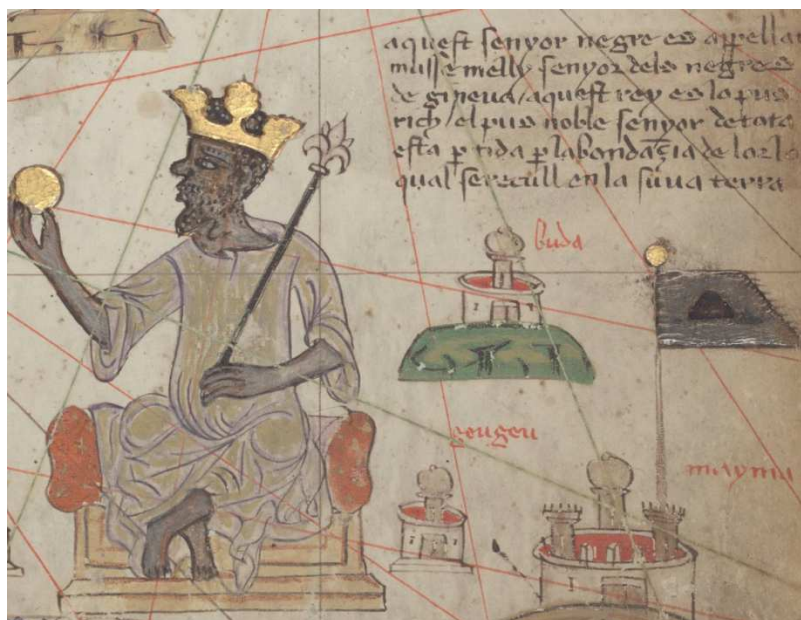 aquest senyor negre es appellat
musse melly senyor dels negres
de gineua aquest rey es lo pus
rich el pus noble senyor de tota
esta ptida p labondaçia de lor lo
qual se recull en la suua terra
buda
geugeu
mayma